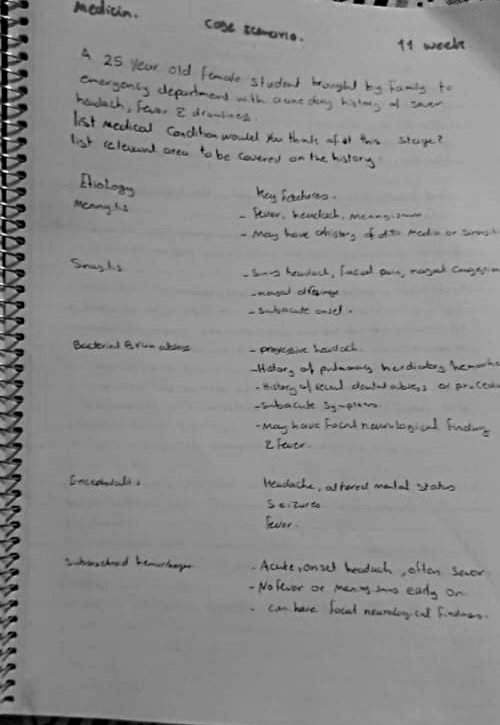 Medicin.
Case scenario.
11 week
A 25 year old female student brought by family to
emergency department with a one day history of sever
headach, fever & drowsines
list Medical Condition would you think of at this stage?
list relevant area to be covered on the history
Etiology
Key features.
Meningitis
- Fever, headach, meningismus
- May have a history of otitis media or sinusitis
Sinusitis
- Sinus headach, facial pain, nasal congestion
- nasal
- subacute onset.
Bacterial Brain abscess
- progressive headach
- History of pulmonary hereditary hemorrha
- History of recent dental abcess or procedu
- subacute symptoms
- May have focal neurological finding
& fever.
Encephalitis
Headache, altered mental status
Seizures
fever.
Subarachnoid hemorrhage
- Acute, onset headach, often sever
- No fever or meningismus early on
- can have focal neurological findings.